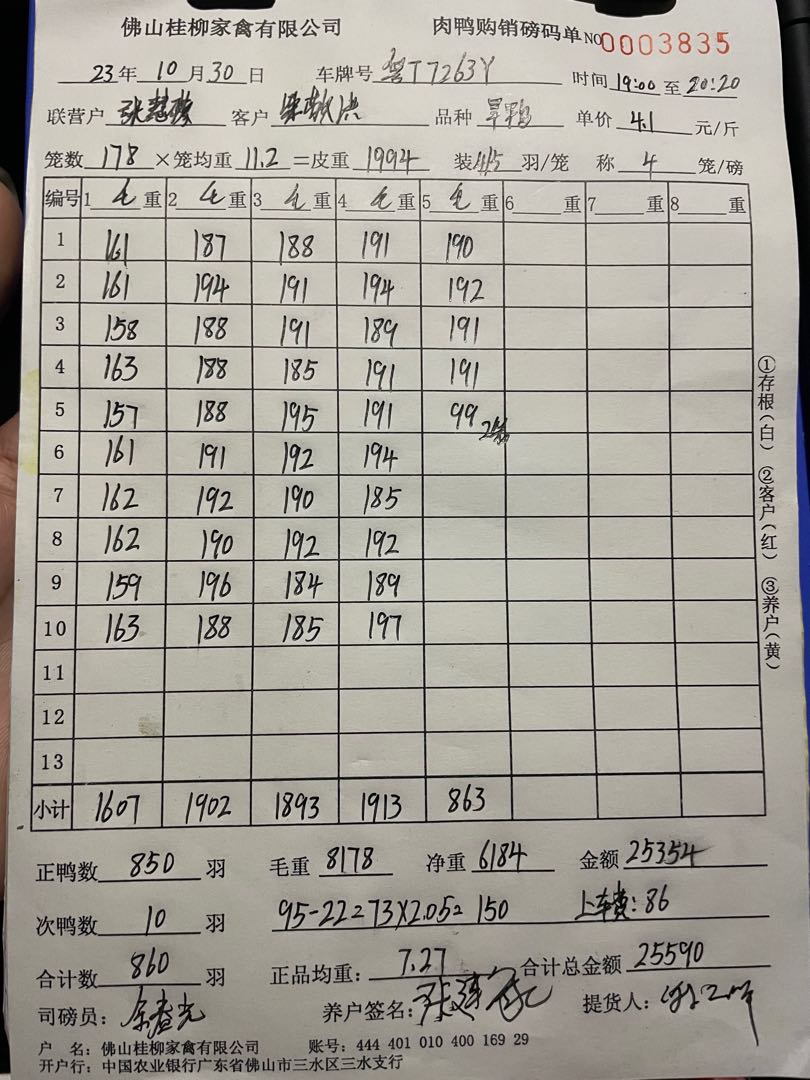 佛山桂柳家禽有限公司 肉鸭购销磅码单 NO 0003835
23年 10月30日 车牌号 粤T7263Y 时间 19:00 至 20:20
联营户 客户 品种 单价 4.1 元/斤
笼数 178 ×笼均重 11.2 =皮重 1994 装 4/5 羽/笼 称 4 笼/磅
编号 1 毛 重 2 毛 重 3 毛 重 4 毛 重 5 毛 重 6 重 7 重 8 重
1 161 187 188 191 190
2 161 194 191 194 192
3 158 188 191 189 191
4 163 188 185 191 191
5 157 188 195 191 99 2笼
6 161 191 192 194
7 162 192 190 185
8 162 190 192 192
9 159 196 184 189
10 163 188 185 197
11
12
13
小计 1607 1902 1893 1913 863
①存根(白) ②客户(红) ③养户(黄)
正鸭数 850 羽 毛重 8178 净重 6184 金额 25354
次鸭数 10 羽 95-22=73×2.05=150 上车费:86
合计数 860 羽 正品均重: 7.27 合计总金额 25590
司磅员: 养户签名: 提货人:
户 名: 佛山桂柳家禽有限公司 账号: 444 401 010 400 169 29
开户行: 中国农业银行广东省佛山市三水区三水支行